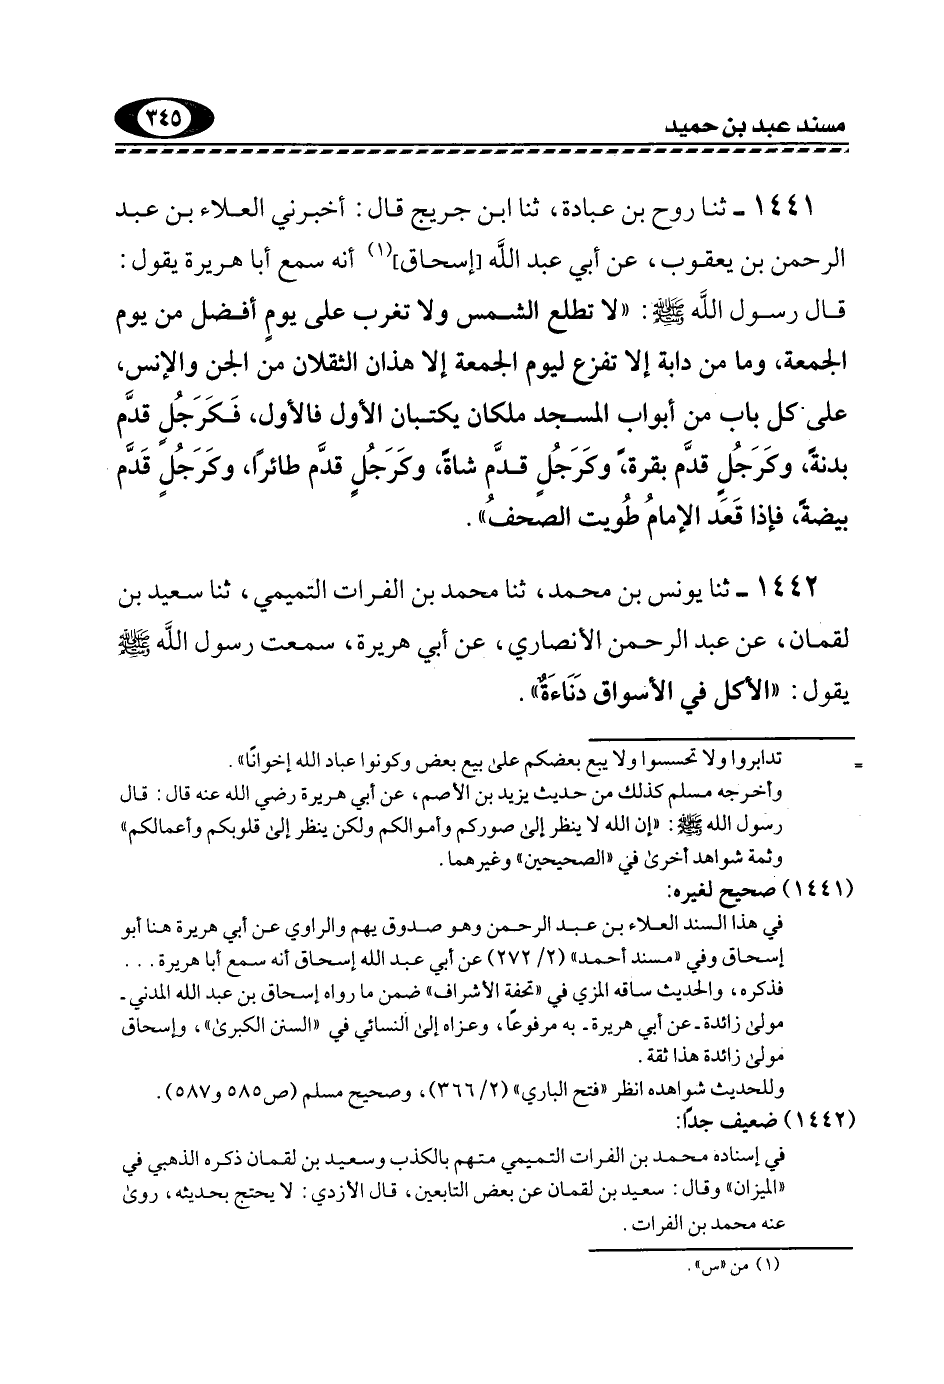 مسند عبد بن حميد
٣٤٥
١٤٤١ - ثنا روح بن عبادة، ثنا ابن جريج قال: أخبرني العلاء بن عبد
الرحمن بن يعقوب، عن أبي عبد اللَّه [إسحاق](١) أنه سمع أبا هريرة يقول:
قال رسول اللَّه ﷺ: «لا تطلع الشمس ولا تغرب على يومٍ أفضل من يوم
الجمعة، وما من دابة إلا تفزع ليوم الجمعة إلا هذان الثقلان من الجن والإنس،
على كل باب من أبواب المسجد ملكان يكتبان الأول فالأول، فَكَرَجُلٍ قدَّم
بدنةً، وكَرَجُلٍ قدَّم بقرة، وكَرَجُلٍ قدَّم شاةً، وكَرَجُلٍ قدَّم طائرًا، وكَرَجُلٍ قَدَّم
بيضةً، فإذا قَعَد الإمامُ طُويت الصحفُ».
١٤٤٢ - ثنا يونس بن محمد، ثنا محمد بن الفرات التميمي، ثنا سعيد بن
لقمان، عن عبد الرحمن الأنصاري، عن أبي هريرة، سمعت رسول اللَّه ﷺ
يقول: «الأكل في الأسواق دَنَاءَةٌ».
= تدابروا ولا تحسسوا ولا يبع بعضكم على بيع بعض وكونوا عباد الله إخوانًا».
وأخرجه مسلم كذلك من حديث يزيد بن الأصم، عن أبي هريرة رضي الله عنه قال: قال
رسول الله ﷺ: «إن الله لا ينظر إلى صوركم وأموالكم ولكن ينظر إلى قلوبكم وأعمالكم»
وثمة شواهد أخرى في «الصحيحين» وغيرهما.
(١٤٤١) صحيح لغيره:
في هذا السند العلاء بن عبد الرحمن وهو صدوق يهم والراوي عن أبي هريرة هنا أبو
إسحاق وفي «مسند أحمد» (٢/ ٢٧٢) عن أبي عبد الله إسحاق أنه سمع أبا هريرة . . .
فذكره، والحديث ساقه المزي في «تحفة الأشراف» ضمن ما رواه إسحاق بن عبد الله المدني -
مولى زائدة - عن أبي هريرة - به مرفوعًا، وعزاه إلى النسائي في «السنن الكبرى»، وإسحاق
مولى زائدة هذا ثقة.
وللحديث شواهده انظر «فتح الباري» (٢/ ٣٦٦)، وصحيح مسلم (ص٥٨٥ و٥٨٧).
(١٤٤٢) ضعيف جدًا:
في إسناده محمد بن الفرات التميمي متهم بالكذب وسعيد بن لقمان ذكره الذهبي في
«الميزان» وقال: سعيد بن لقمان عن بعض التابعين، قال الأزدي: لا يحتج بحديثه، روى
عنه محمد بن الفرات.
(١) من «س».